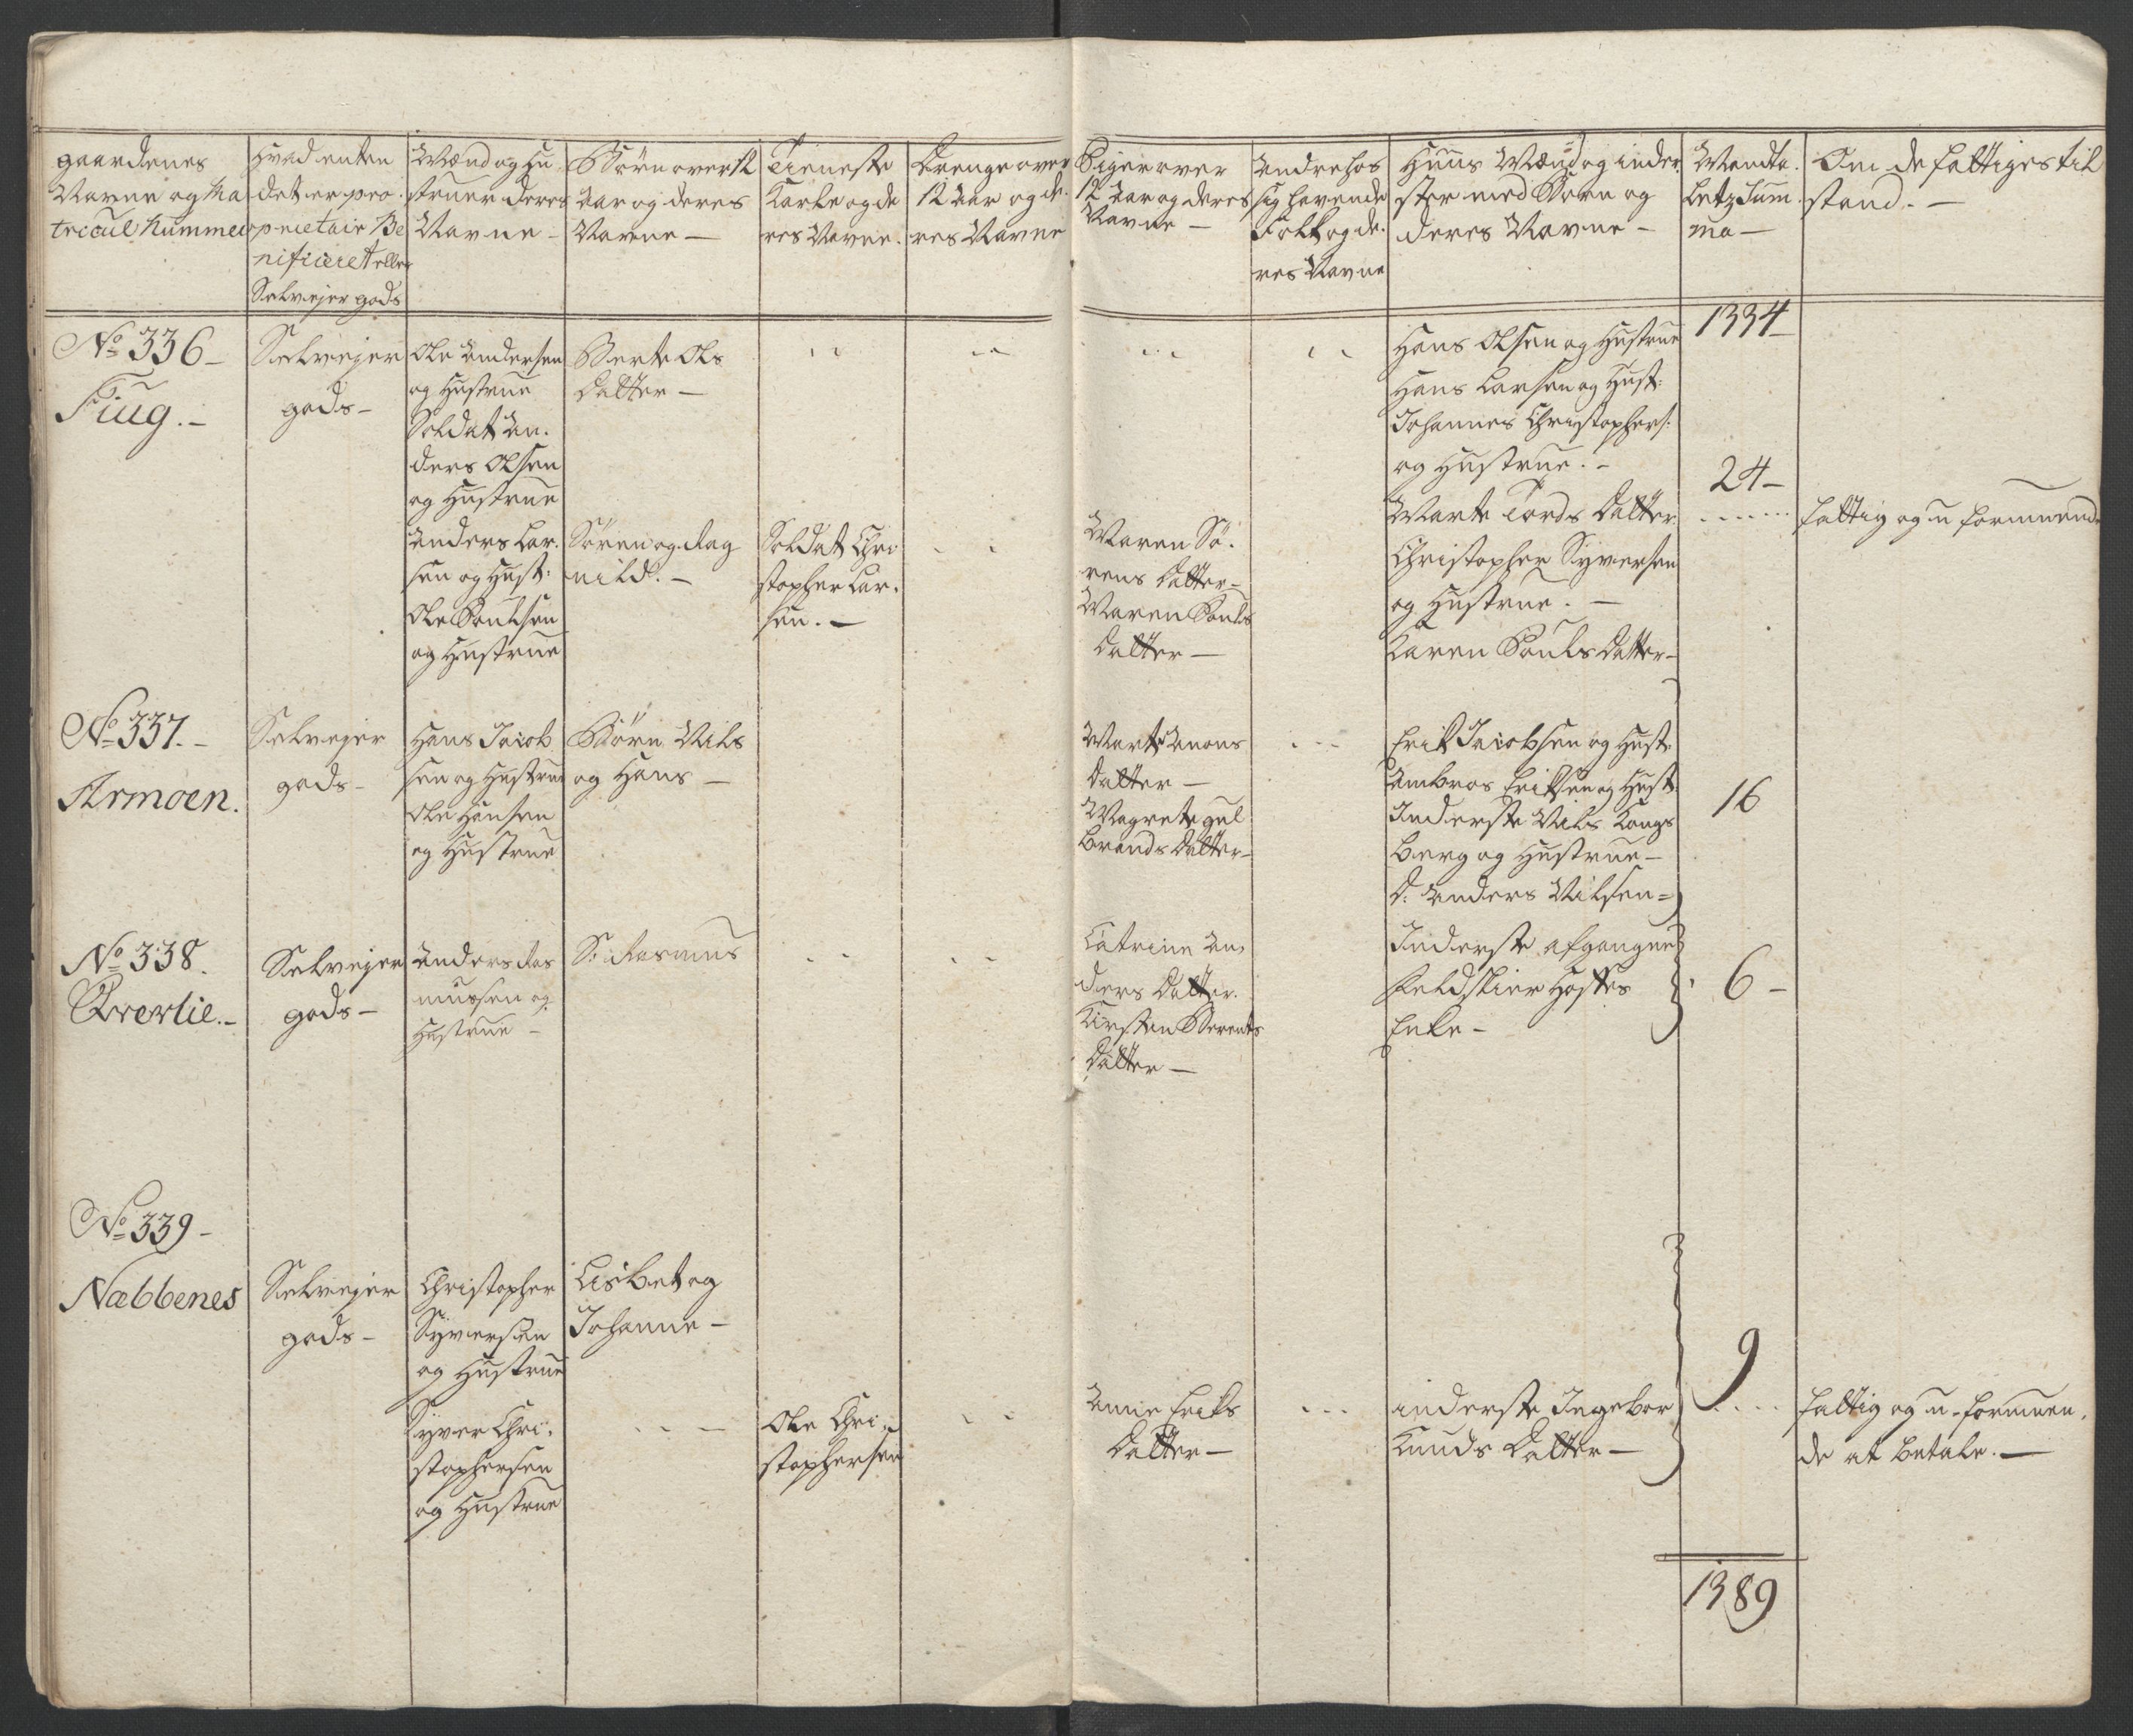 gaardenes
Navne og Ma
tricul Nummer
Hvad enten
det er pro.
prietair Be
nificeret eller
Selvejer gods
Mænd og Hu
struer deres
Navne –
Børn over 12
Aar og deres
Navne –
Tieneste
Karle og de
res Navne.
Drenge over
12 Aar og de.
res Navne
Piger over
12 Aar og deres
Navne –
Andre hos
sig havende
Folk og de.
res Navne
Huus Mænd og inder
ster med Børn og
deres Navne –
Mandta.
lets Sum.
ma –
Om de fattiges til
stand. –
1334
No 336 –
Fiug. –
Selvejer
gods –
Ole Andersen
og Hustrue
Soldat An.
ders Olsen
og Hustrue
Anders Lar.
sen og Hust:
Ole Poulsen
og Hustrue
Berte Ols
Datter –
Søren og Rag
nild. –
Soldat Chri
stopher Lar.
sen. –
Maren Sø.
rens Datter –
Maren Pouls
Datter –
Hans Olsen og Hustrue
Hans Larsen og Hust:
Johannes Christophers:
og Hustrue. –
Marte Tords Datter
Christopher Syversen
og Hustrue. –
Karen Pouls Datter –
24 –
fattig og u formuend
No 337. –
Armoen.
Selvejer
gods –
Hans Jacob
sen og Hustrue
Ole Hansen
og Hustrue
Børn Nils
og Hans –
Marte Amons
Datter –
Magrete Gul
brands Datter –
Erik Jacobsen og Hust.
Ambros Eriksen og Hust.
Inderste Nils Kongs
berg og Hustrue –
D: Anders Nilsen =
16
No 338.
Selvejer
gods –
Anders Ras
mussen og
Hustrue –
S: Rasmus
Catrine An,
ders Datter.
Kirsten Berents
Datter –
Inderste afgangne
Feldskier
Enke –
6 –
No 339 –
Næbbenes
Selvejer
gods –
Christopher
Syversen
og Hustrue
Syver Chri,
stophersen
og Hustrue
Lisbet og
Johanne –
Ole Chri,
stophersen
Anne Eriks
Datter –
inderste Ingebor
Knuds Datter –
9
fattig og u-formuen,
de at betale. –
1389